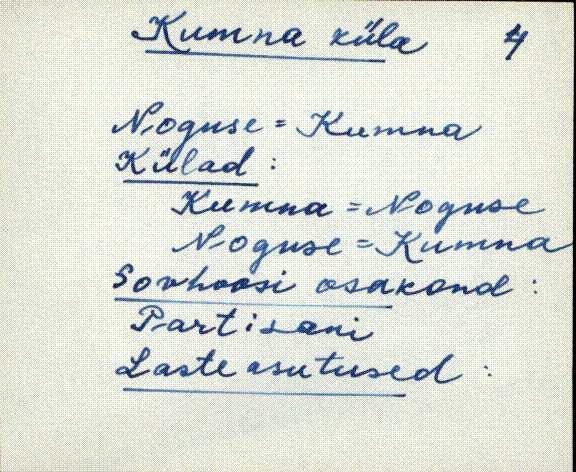 Kumna küla 4
Noguse = Kumna
Külad :
Kumna = Noguse
Noguse = Kumna
Sovhoosi osakond :
Partisani
Lasteasutused :